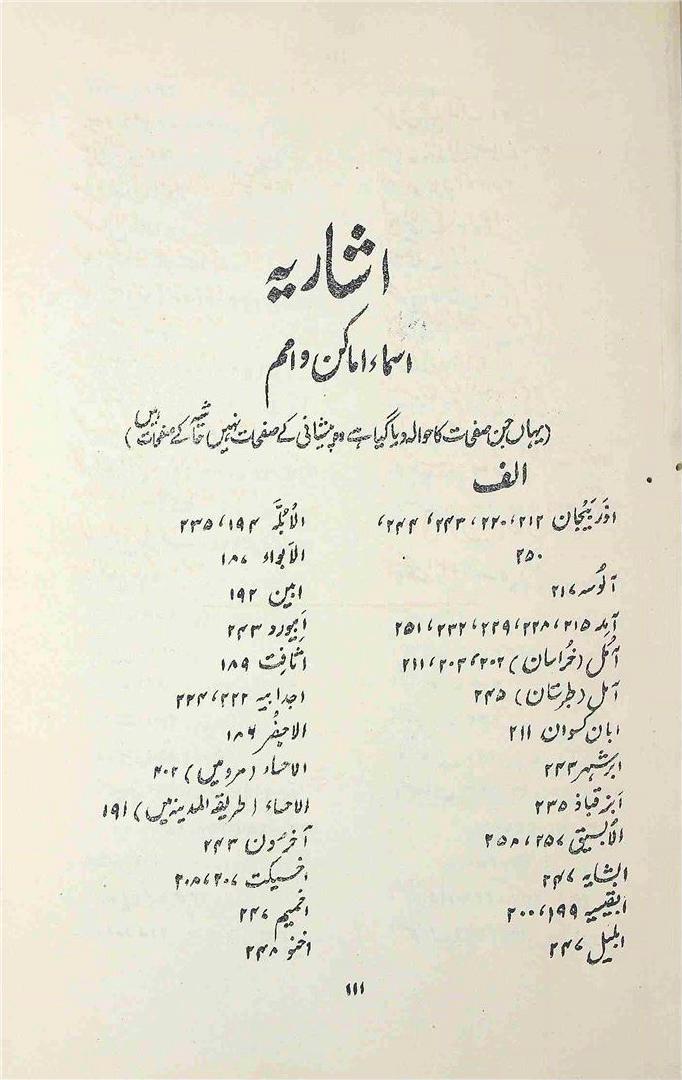 اشاریہ
اسماء اماکن و امم
(یہاں جن صفحات کا حوالہ دیا گیا ہے وہ پیشانی کے صفحات نہیں حاشیہ کے صفحات ہیں)
الف
اذربیجان ۲۱۲، ۲۲۰، ۲۴۳، ۲۴۴،
۲۵۰
آلوسہ ۲۱۷
آمد ۲۱۵، ۲۲۸، ۲۲۹، ۲۳۲، ۲۵۱
آمل (خراسان) ۲۰۲، ۲۰۳، ۲۱۱
آمل (طبرستان) ۲۴۵
ابان کسوان ۲۱۱
ابرشہر ۲۴۳
ابز قباذ ۲۳۵
الابسیق ۲۵۷، ۲۵۸
ابشایہ ۲۴۷
ابقیسہ ۱۹۹، ۲۰۰
ابلیل ۲۴۷
الابلہ ۱۹۴، ۲۳۵
الابواء ۱۸۷
ابین ۱۹۲
ابیورد ۲۴۳
اثافت ۱۸۹
اجدابیہ ۲۲۲، ۲۲۴
الاجفر ۱۸۶
الاحساء (مرو میں) ۲۰۲
الاحساء (طریق المدینہ میں) ۱۹۱
آخرسون ۲۴۳
اخسیکت ۲۰۷، ۲۰۸
اخمیم ۲۴۷
اخنو ۲۴۸
۱۱۱